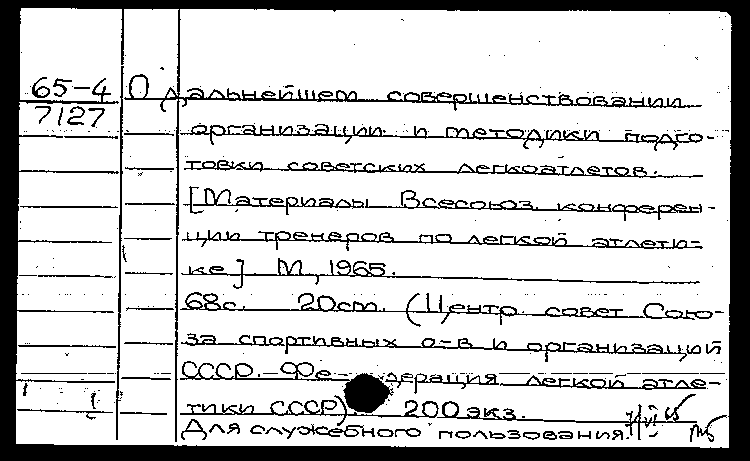 65-4 О дальнейшем совершенствовании
7127
организации и методики подго-
товки советских легкоатлетов.
[Материалы Всесоюз. конферен-
ции тренеров по легкой атлети-
ке]. М., 1965.
68с. 20см. (Центр. совет Сою-
за спортивных о-в и организаций
СССР. Фе-дерация легкой атле-
тики СССР) 200 экз.
Для служебного пользования.